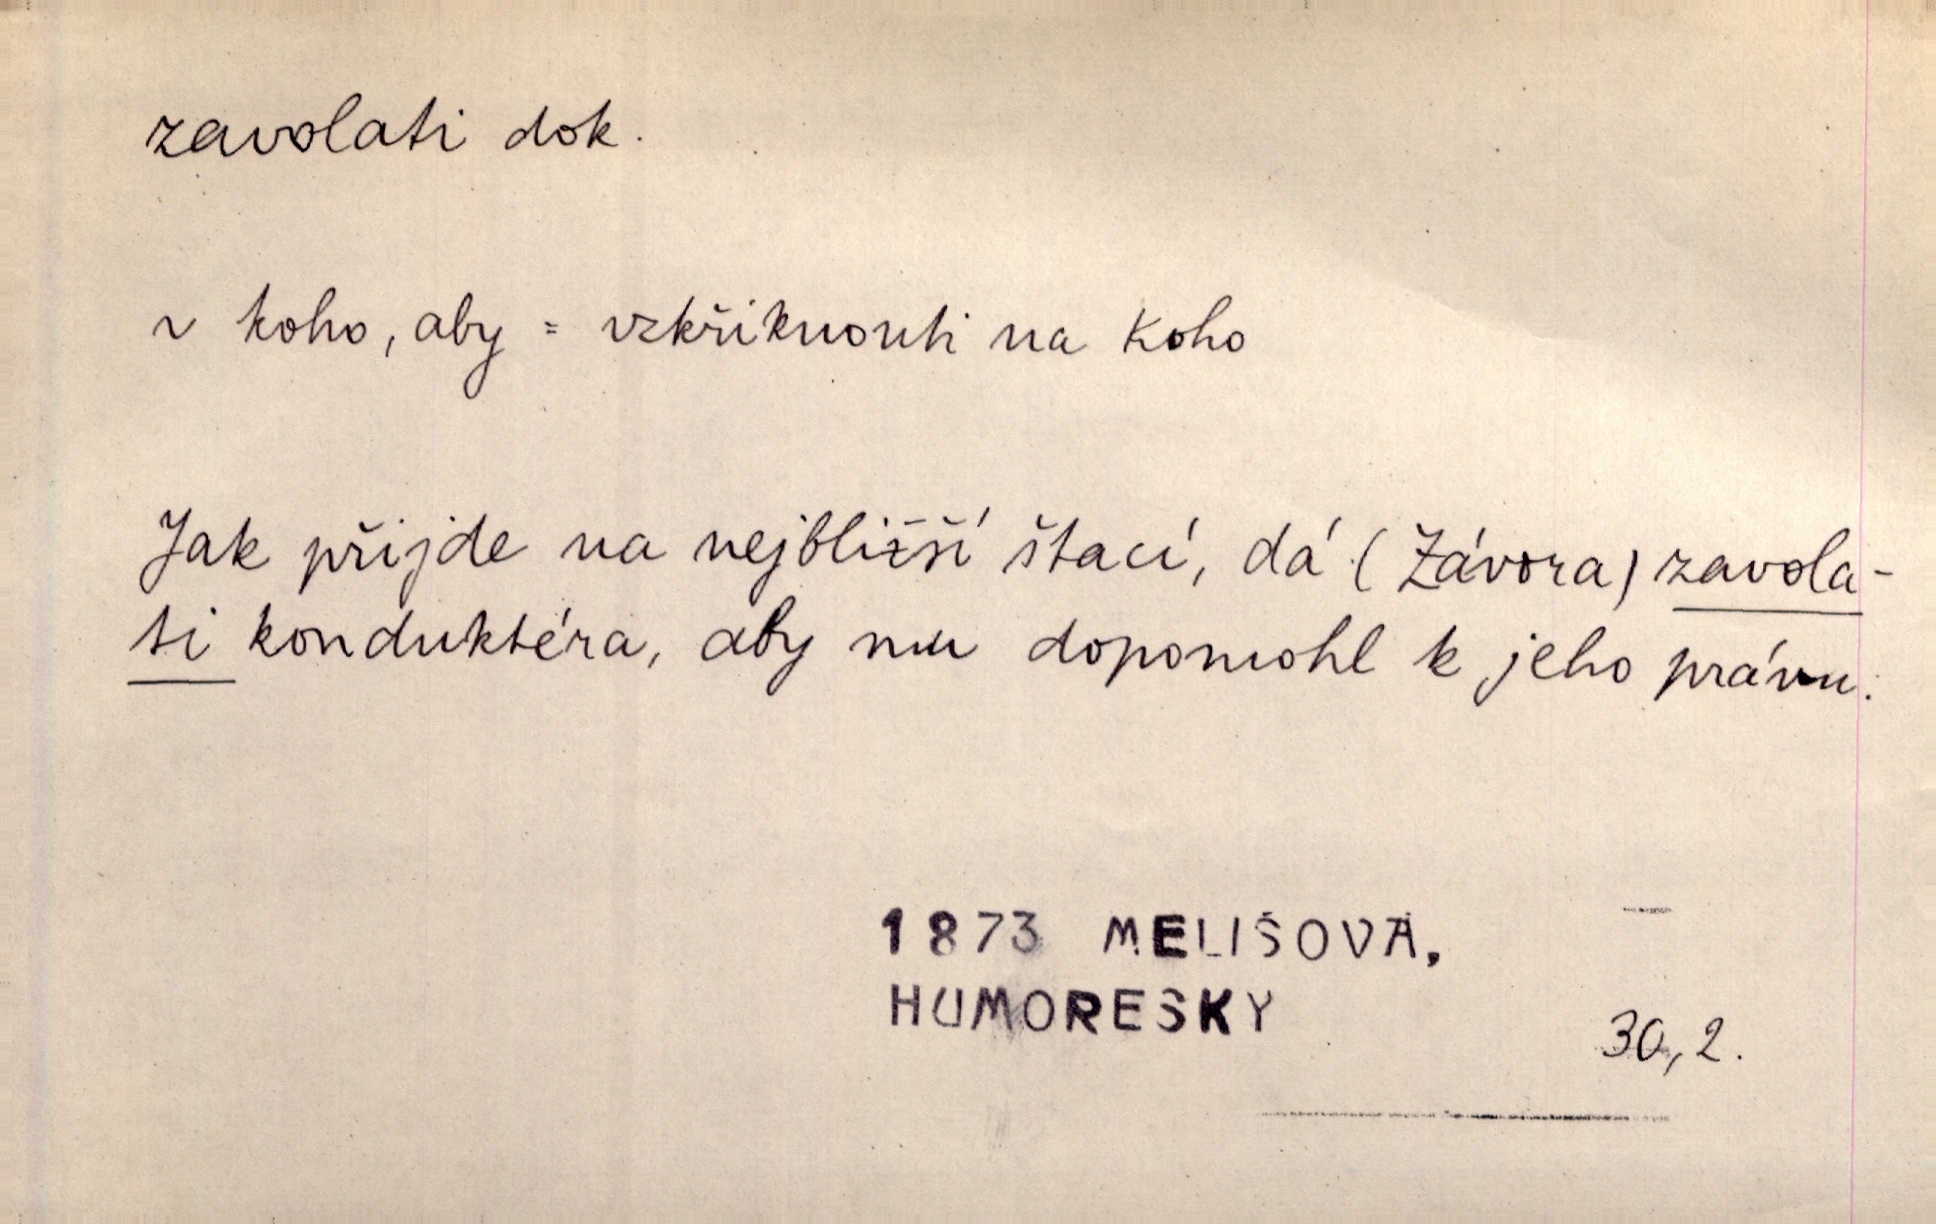 zavolati dok.
~ koho, aby = vzkřiknouti na koho
Jak přijde na nejbližší štací, dá (Závora) zavola-
ti konduktéra, aby mu dopomohl k jeho právu.
1873 MELIŠOVÁ,
HUMORESKY
30,2.